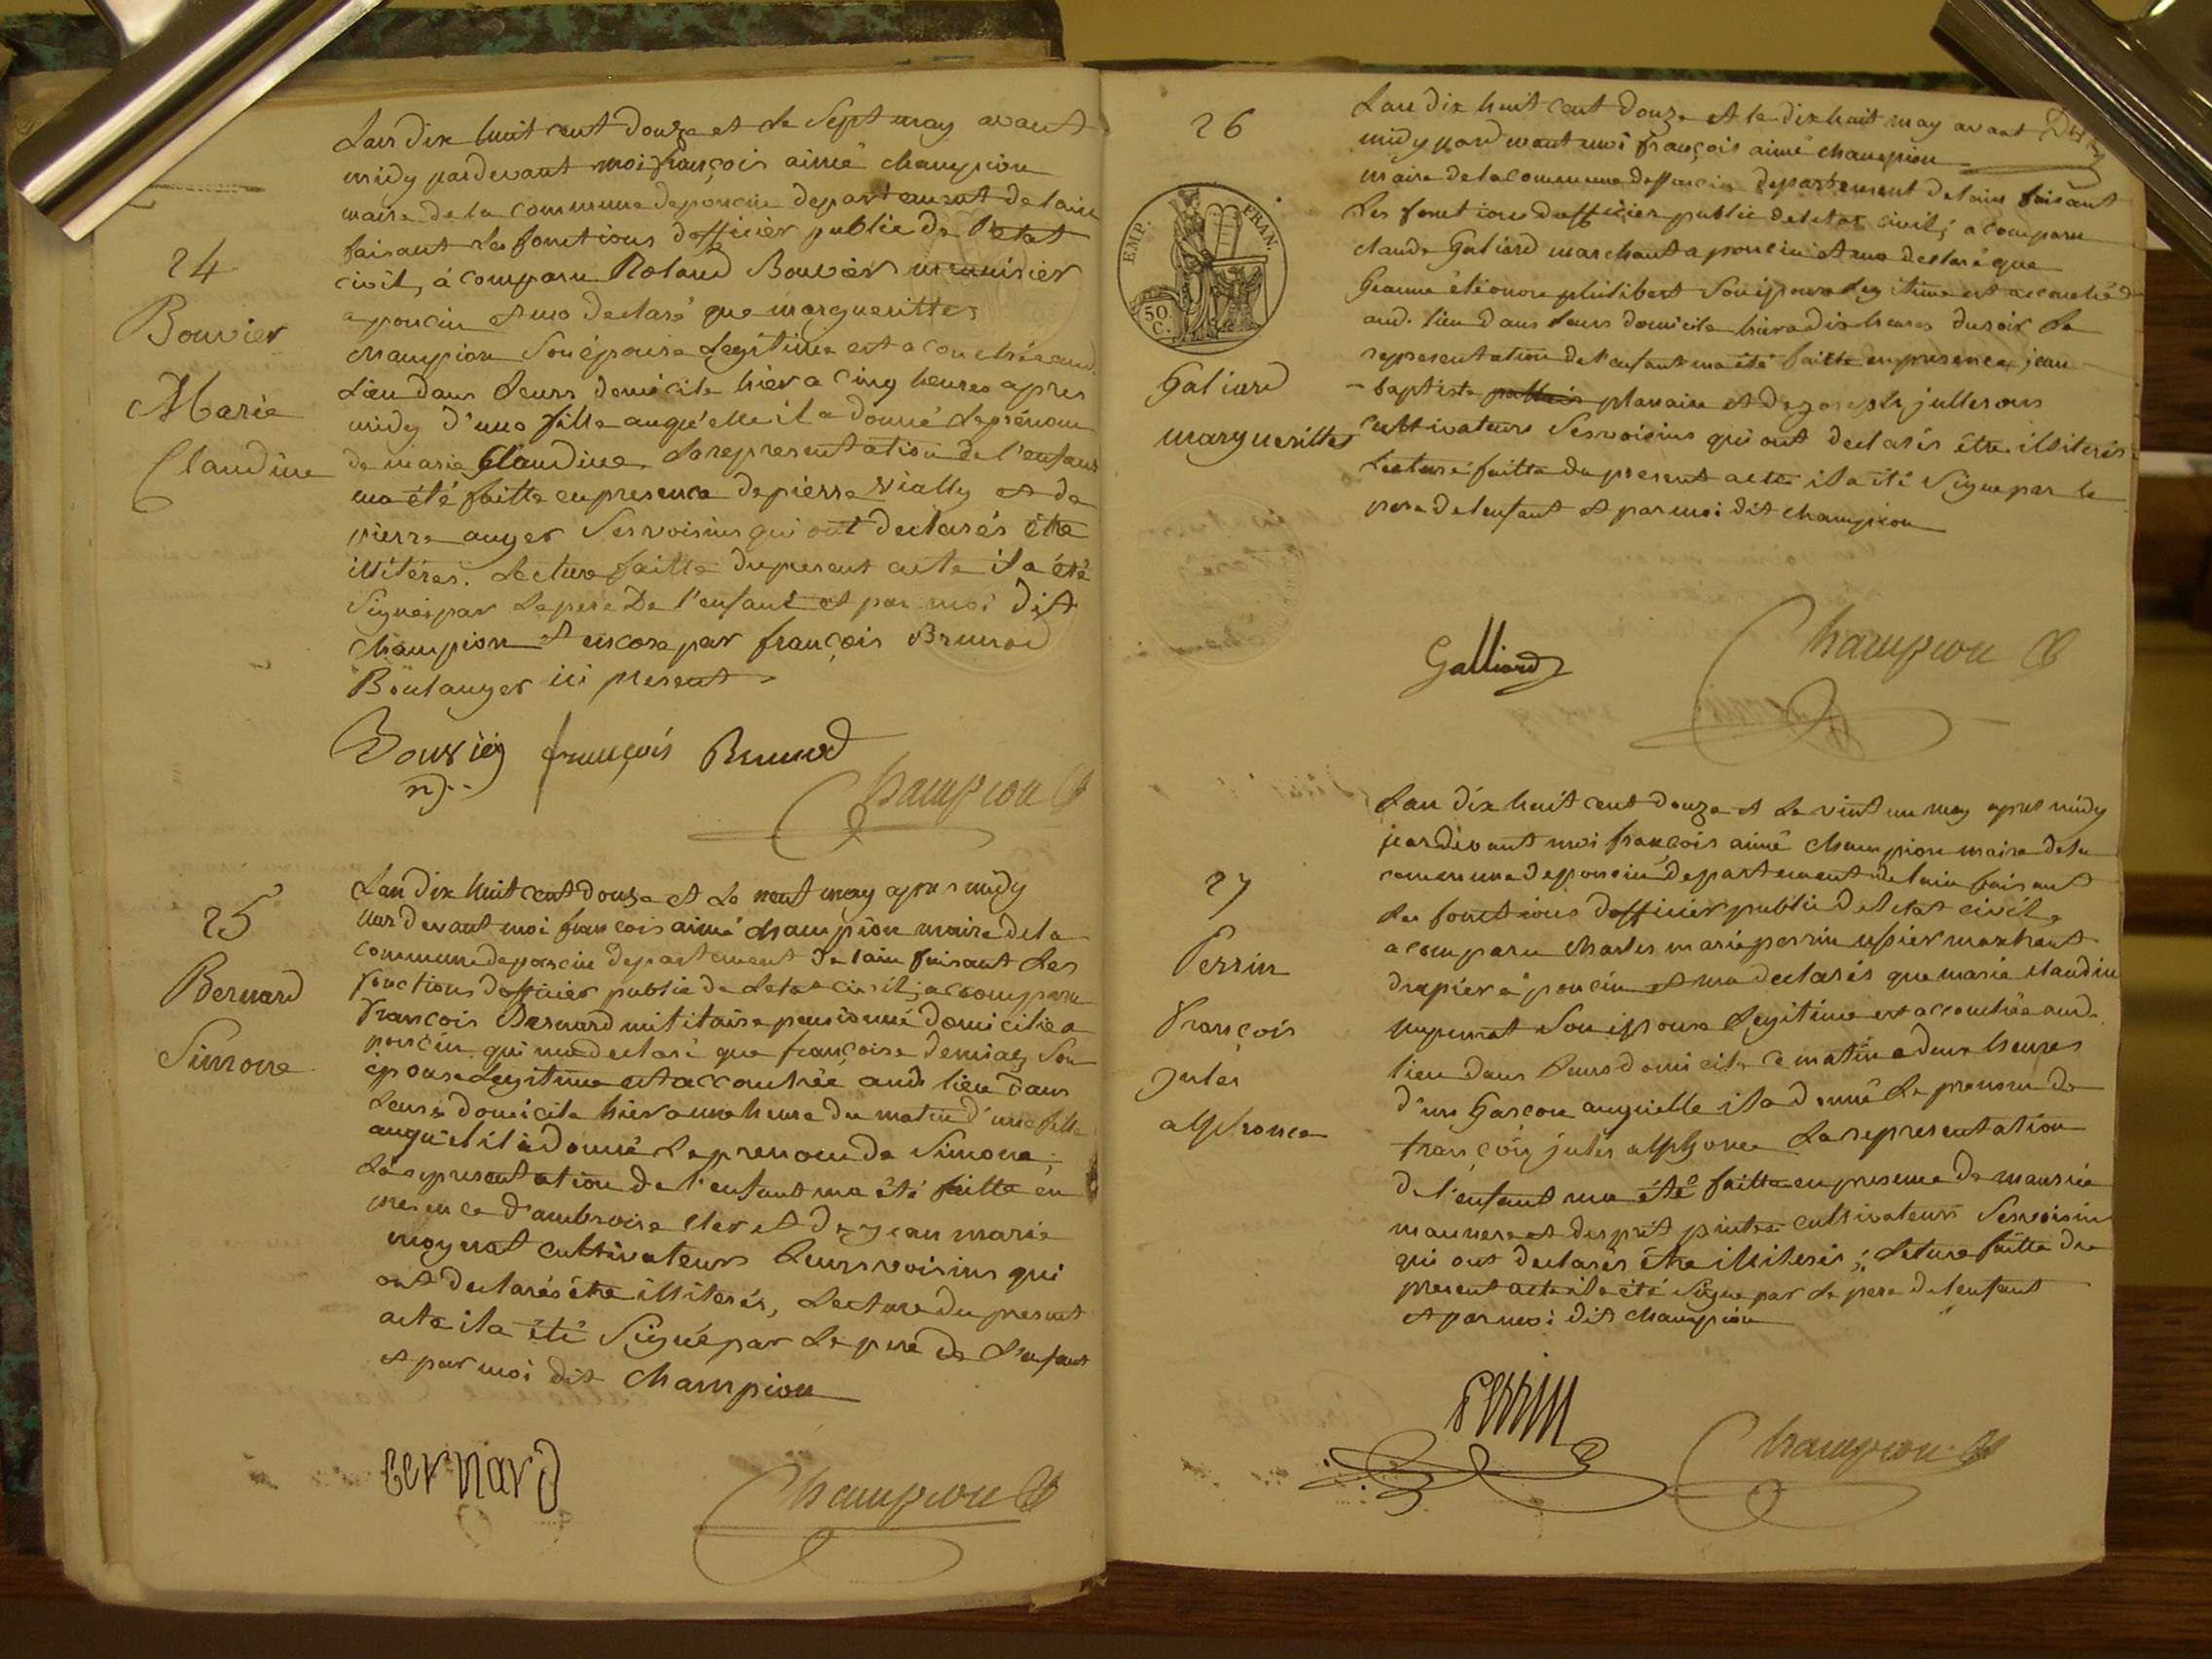 24
Bouvier
Marie
Claudine
Lan dix huit cent douze et le Sept may avant
midy pardevant moi françois aimé champion
maire de la commune de poncin departement de lain
faisant les fonctions dofficier public de l'etat
civil, à comparu Roland Bouvier menuisier
a poncin et ma declaré que margueritte
champion Son épouse Legitime est acouchée aud.
Lieu dans leurs domicile hier a cinq heures apres
midy d'une fille auqu'elle il a donné le prénom
de marie Claudine. La representation de l'enfant
ma été faitte en presence de pierre vially et de
pierre auger Ses voisins qui ont declarés être
illitéres. Lecture faitte du present acte il a été
Signé par le pere De l'enfant et par moi dit
Champion et encore par françois Brunod
Boulanger ici present
Bouvier françois Brunod
Champion
25
Bernard
Simone
Lan dix huit cent douze et le neuf may apres midy
pardevant moi françois aimé champion maire de la
commune de poncin departement de lain faisant les
fonctions dofficier public de letat civil, a comparu
François Bernard militaire pensionné domicilié a
poncin qui ma declaré que françoise Son
épouse Legitime est accouchée aud. lieu dans
leurs domicile hier a une heure du matin d'une fille
auqu'el il à donné le prenom de Simone;
La representation de l'enfant ma été faitte en
presence d'ambroise cler et de jean marie
moynat cultivateurs Leurs voisins qui
ont declarés être illiterés, Lecture du present
acte il a été Signé par le pere de L'enfant
et par moi dit Champion
Bernard
Champion
26
EMP. FRAN.
50 C.
Galiard
margueritte
Lan dix huit cent douze et le dix huit may avant
midy pardevant moi françois aimé champion
maire de la commune de poncin departement de lain faisant
les fonctions dofficier public de letat civil; a comparu
claude Galiard marchant a poncin et ma declaré que
Jeanne éléonore philibert Son épouse Legitime est accouchée
aud. lieu dans leurs domicile hier a dix heures du soir La
representation de l'enfant ma été faitte en presence jean
baptiste planaise et de joseph jullerons
cultivateurs Ses voisins qui ont declarés être illiterés
Lecture faitte du present acte il a été Signé par le
pere de lenfant et par moi dit champion
Galliard
Champion
27
Perrin
François
Jules
alphonce
Lan dix huit cent douze et le vint un may apres midy
pardevant moi françois aimé champion maire de la
commune de poncin departement de lain faisant
les fonctions dofficier public de letat civil,
a comparu charles marie perrin marchant
drapier à poncin et ma declarés que marie claudine
Son épouse Legitime est accouchée aud.
lieu dans leurs domicile ce matin a deux heures
d'un Garçon auquelle il a donné le prenom de
françois jules alphonce La representation
de l'enfant ma été faitte en presence de
et cultivateurs Ses voisins
qui ont declarés être illiterés; lecture faitte du
present acte il a été Signé par le pere de lenfant
et par moi dit champion
Perrin
Champion